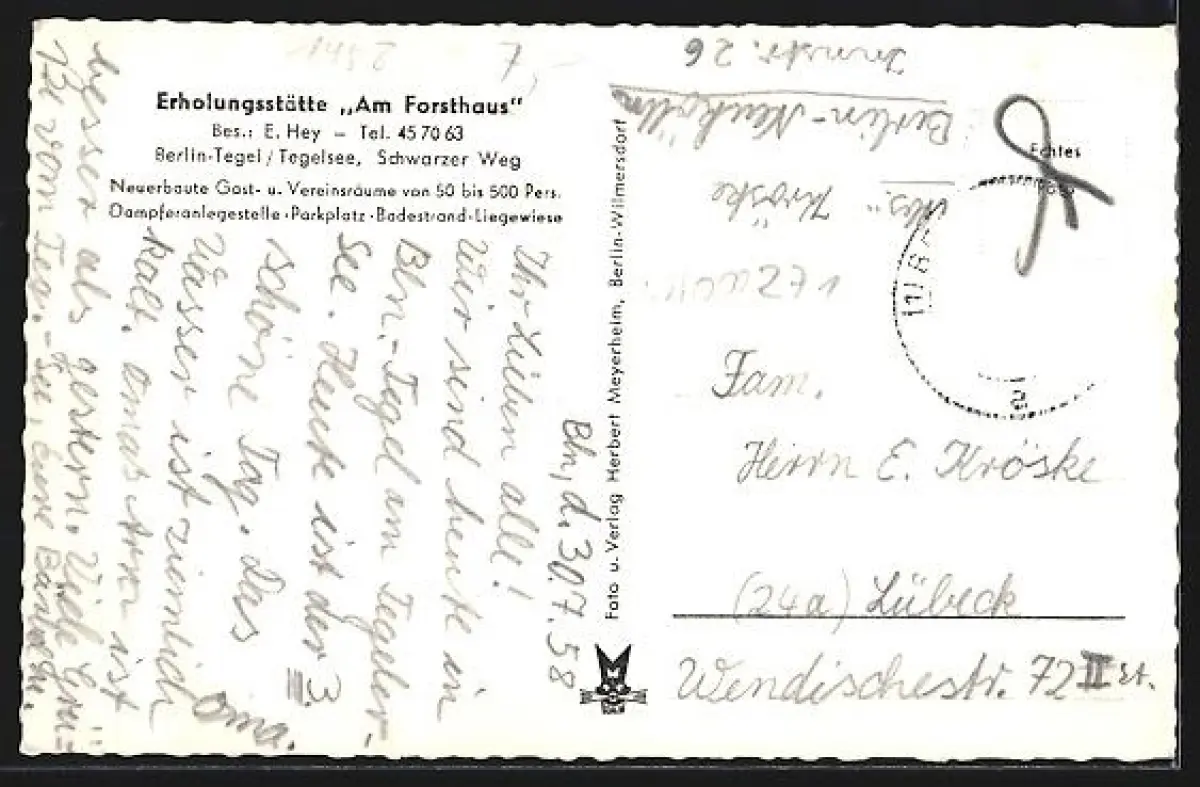 Erholungsstätte „Am Forsthaus"
Bes.: E. Hey – Tel. 45 70 63
Berlin-Tegel / Tegelsee, Schwarzer Weg
Neuerbaute Gast- u. Vereinsräume von 50 bis 500 Pers.
Dampferanlegestelle · Parkplatz · Badestrand · Liegewiese
Bln, d. 30.7.58
Ihr Lieben alle!
Wir sind heute in
Bln.-Tegel am Tegeler-
See. Heute ist der 3.
schöne Tag. Das
Wasser ist ziemlich
kalt. Omas Arm ist
besser als gestern. Viele Grü-
ße vom Teg.-See, Eure
Oma.
Foto u. Verlag Herbert Meyerheim, Berlin-Wilmersdorf
Echtes
Foto
Abs. Kröske
Berlin-Neukölln
Innstr. 26
Fam.
Herrn E. Kröske
(24a) Lübeck
Wendischestr. 72 II St.